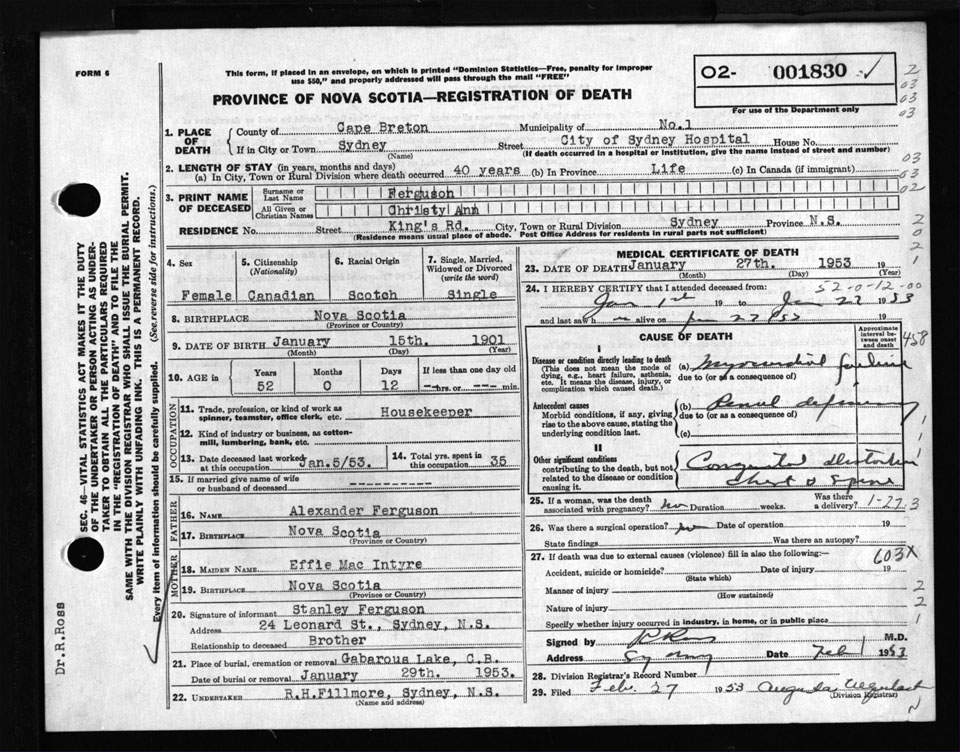 FORM 6
This form, if placed in an envelope, on which is printed "Dominion Statistics—Free, penalty for improper
use $50," and properly addressed will pass through the mail "FREE"
PROVINCE OF NOVA SCOTIA—REGISTRATION OF DEATH
O2- 001830
For use of the Department only
1. PLACE OF DEATH
County of Cape Breton Municipality of No.1
If in City or Town Sydney Street City of Sydney Hospital House No.
(Name) (If death occurred in a hospital or institution, give the name instead of street and number)
2. LENGTH OF STAY (in years, months and days)
(a) In City, Town or Rural Division where death occurred 40 years (b) In Province Life (c) In Canada (if immigrant)
3. PRINT NAME OF DECEASED
Surname or Last Name Ferguson
All Given or Christian Names Christy Ann
RESIDENCE No. Street King's Rd. City, Town or Rural Division Sydney Province N.S.
(Residence means usual place of abode. Post Office Address for residents in rural parts not sufficient)
4. Sex Female
5. Citizenship (Nationality) Canadian
6. Racial Origin Scotch
7. Single, Married, Widowed or Divorced (write the word) Single
8. BIRTHPLACE Nova Scotia
(Province or Country)
9. DATE OF BIRTH January 15th. 1901
(Month) (Day) (Year)
10. AGE in Years Months Days If less than one day old
52 0 12 hrs. or min.
OCCUPATION
11. Trade, profession, or kind of work as spinner, teamster, office clerk, etc. Housekeeper
12. Kind of industry or business, as cotton-mill, lumbering, bank, etc.
13. Date deceased last worked at this occupation Jan.5/53.
14. Total yrs. spent in this occupation 35
15. If married give name of wife or husband of deceased
FATHER
16. NAME Alexander Ferguson
17. BIRTHPLACE Nova Scotia
(Province or Country)
MOTHER
18. MAIDEN NAME Effie Mac Intyre
19. BIRTHPLACE Nova Scotia
(Province or Country)
20. Signature of informant Stanley Ferguson
Address 24 Leonard St., Sydney, N.S.
Relationship to deceased Brother
21. Place of burial, cremation or removal Gabarous Lake, C.B.
Date of burial or removal January 29th. 1953.
22. UNDERTAKER R.H.Fillmore, Sydney, N.S.
(Name and address)
MEDICAL CERTIFICATE OF DEATH
23. DATE OF DEATH January 27th. 1953 19
(Month) (Day) (Year)
52-0-12-00
24. I HEREBY CERTIFY that I attended deceased from:
Jan 1st 19 to Jan 27 1953
and last saw h alive on Jan 27 53
CAUSE OF DEATH
Approximate interval between onset and death
I
Disease or condition directly leading to death (a) Myocardial failure
(This does not mean the mode of dying, e.g., heart failure, asthenia, etc. It means the disease, injury, or complication which caused death.)
due to (or as a consequence of)
Antecedent causes (b) Renal
Morbid conditions, if any, giving rise to the above cause, stating the underlying condition last.
due to (or as a consequence of)
(c)
II
Other significant conditions
contributing to the death, but not related to the disease or condition causing it.
Chest & Spine
458
25. If a woman, was the death associated with pregnancy? no Duration weeks. Was there a delivery? 1-27.3
26. Was there a surgical operation? no Date of operation 19
State findings Was there an autopsy?
27. If death was due to external causes (violence) fill in also the following: 603X
Accident, suicide or homicide? Date of injury 19
(State which)
Manner of injury
(How sustained)
Nature of injury
Specify whether injury occurred in industry, in home, or in public place
Signed by R Ross M.D.
Address Sydney Date Feb 1 1953
28. Division Registrar's Record Number
29. Filed Feb. 27 1953 Augusta
(Division Registrar)
SEC. 46—VITAL STATISTICS ACT MAKES IT THE DUTY
OF THE UNDERTAKER OR PERSON ACTING AS UNDER-
TAKER TO OBTAIN ALL THE PARTICULARS REQUIRED
IN THE "REGISTRATION OF DEATH" AND TO FILE THE
SAME WITH THE DIVISION REGISTRAR WHO SHALL ISSUE THE BURIAL PERMIT.
WRITE PLAINLY WITH UNFADING INK. THIS IS A PERMANENT RECORD.
Every item of information should be carefully supplied. (See reverse side for instructions.)
Dr.R.Ross